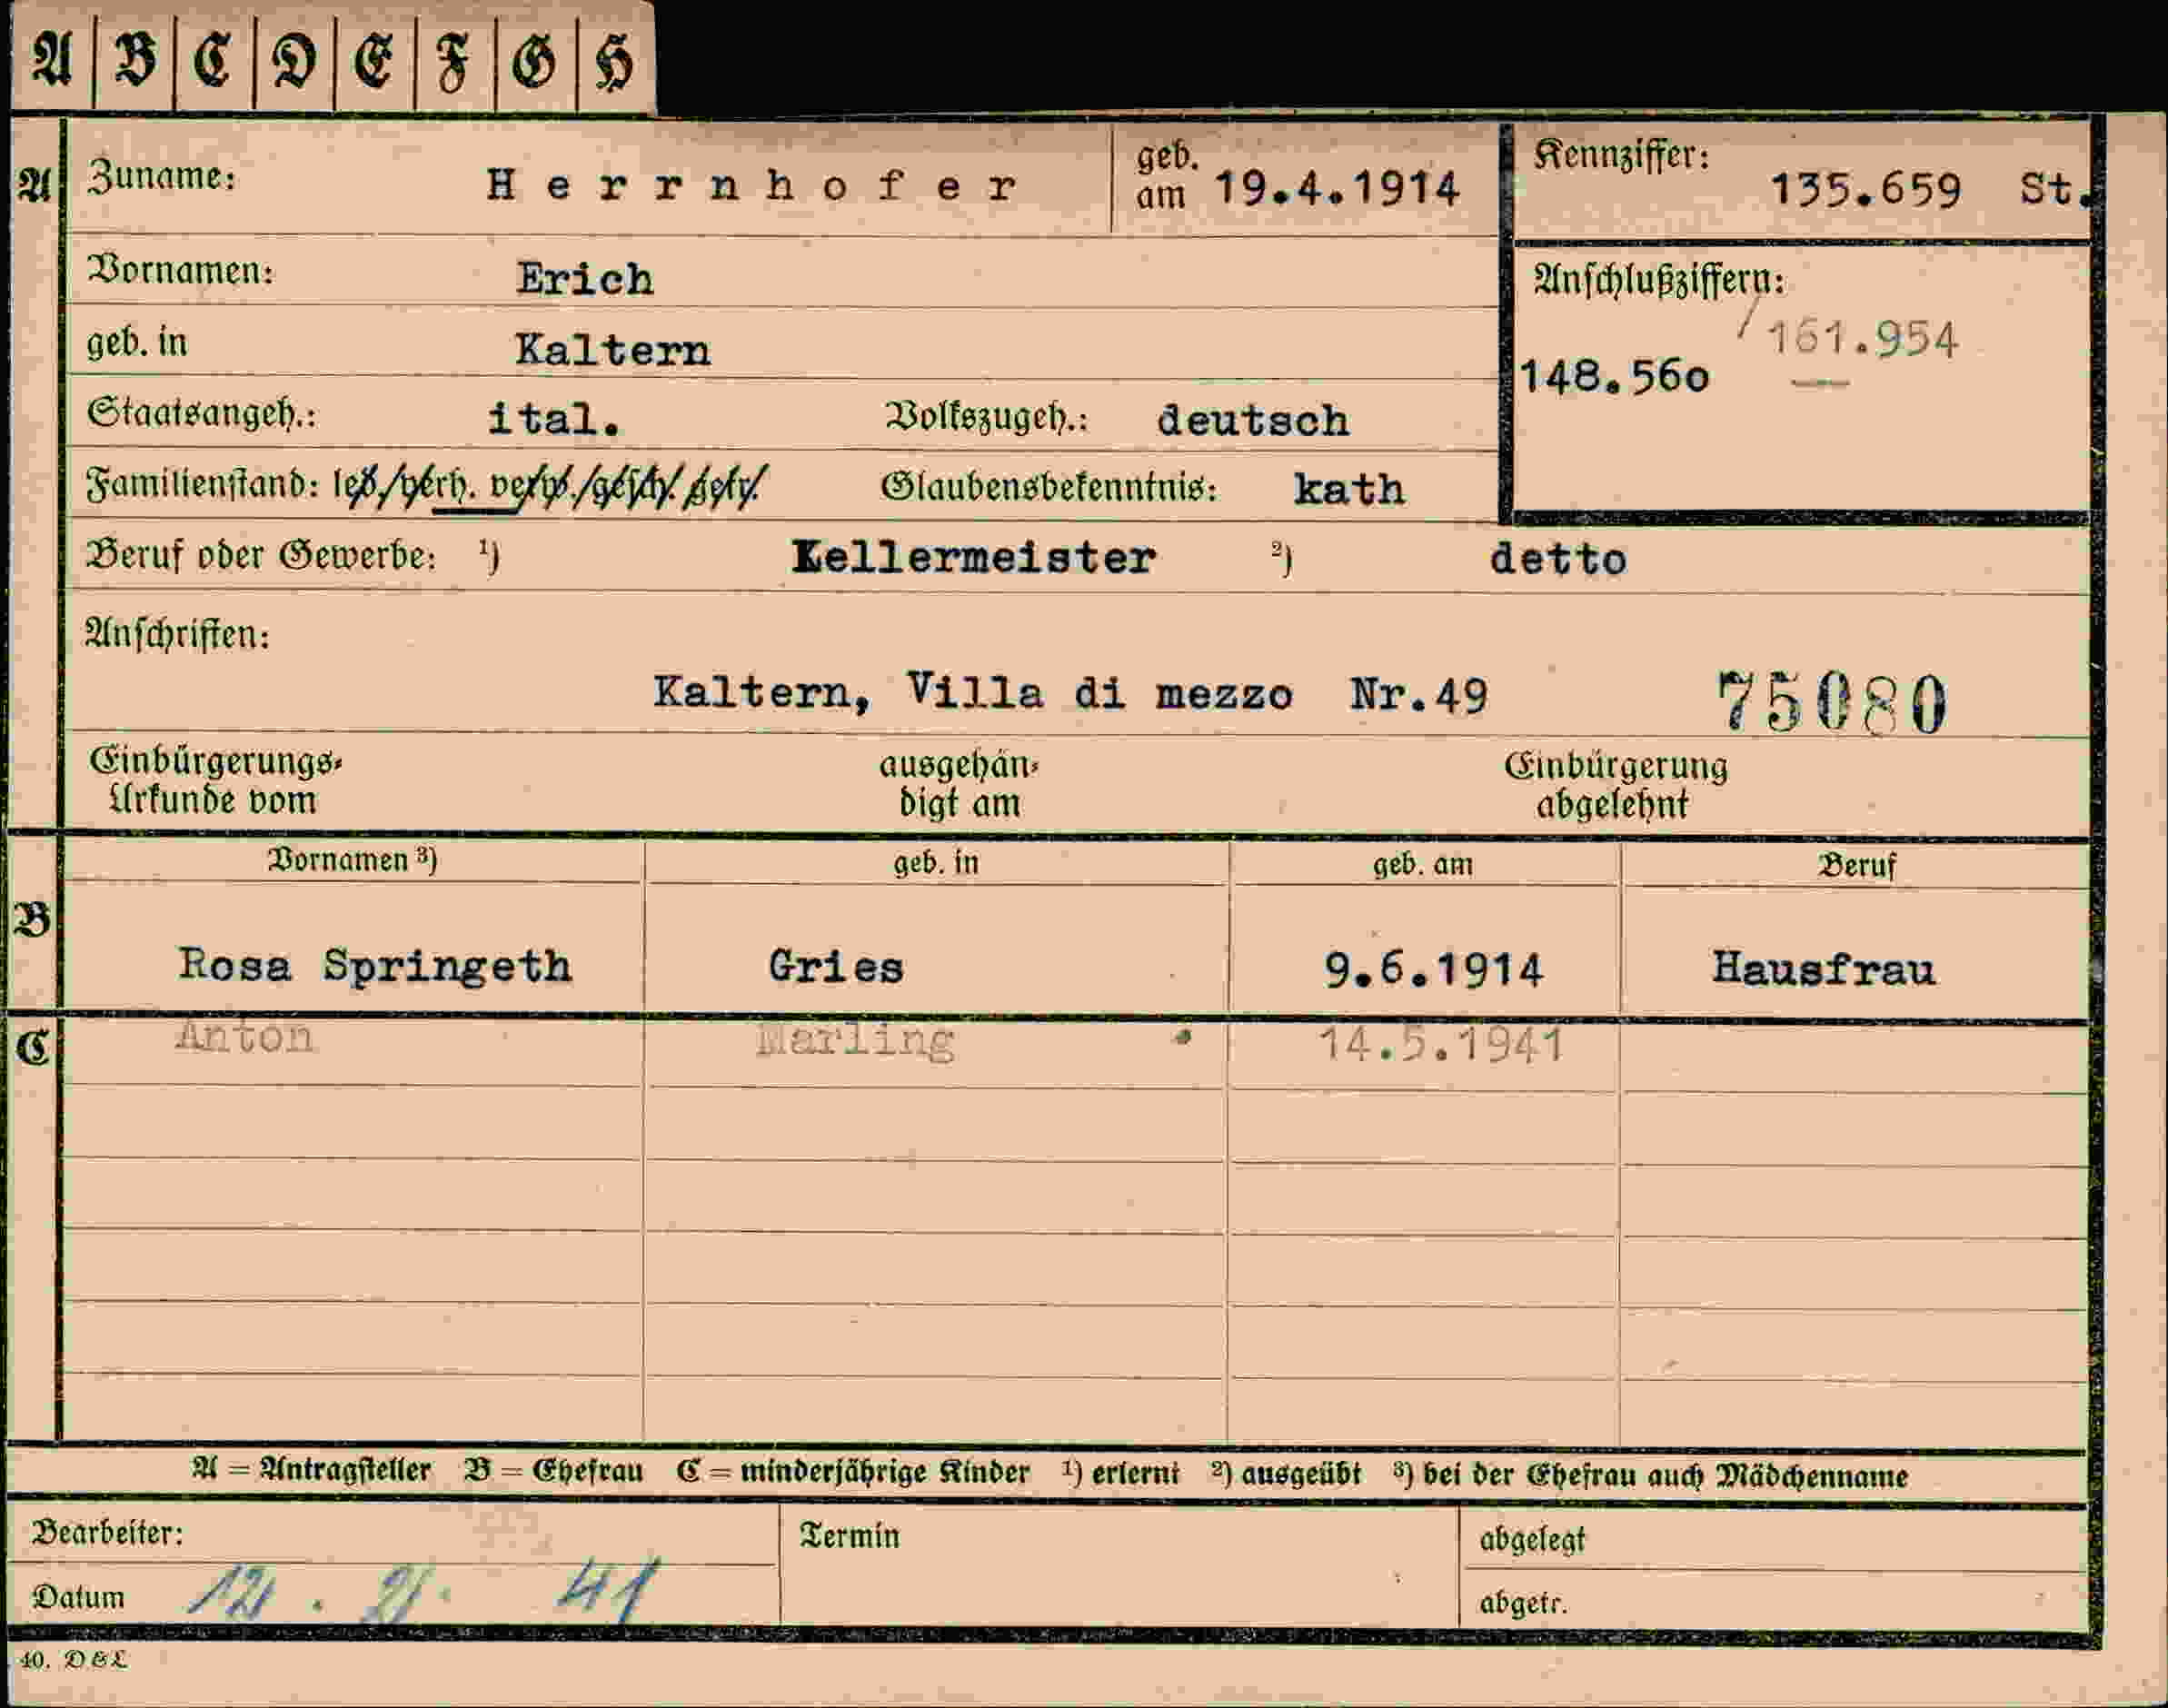 A B C D E F G H
A Zuname: Herrnhofer geb. am 19.4.1914 Kennziffer: 135.659 St.
Vornamen: Erich
Anschlußziffern:
/161.954
148.56o
geb. in Kaltern
Staatsangeh.: ital. Volkszugeh.: deutsch
Familienstand: led./verh. verw./gesch./getr. Glaubensbekenntnis: kath
Beruf oder Gewerbe: 1) Kellermeister 2) detto
Anschriften:
Kaltern, Villa di mezzo Nr.49 75080
Einbürgerungs- ausgehän- Einbürgerung
Urkunde vom digt am abgelehnt
Vornamen 3) geb. in geb. am Beruf
B
Rosa Springeth Gries 9.6.1914 Hausfrau
C Anton Marling 14.5.1941
A = Antragsteller B = Ehefrau C = minderjährige Kinder 1) erlernt 2) ausgeübt 3) bei der Ehefrau auch Mädchenname
Bearbeiter: Termin abgelegt
Datum 12. 41 abgetr.
40. D & L